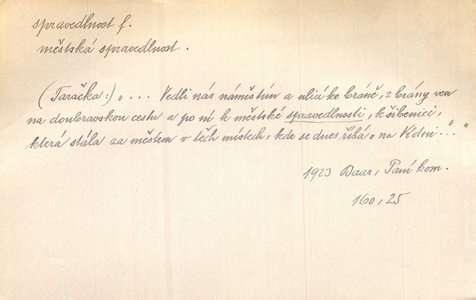 spravedlnost f.
městská spravedlnost.
(Taračka:) „... Vedli nás náměstím a ulicí ke bráně, z brány ven
na doubravskou cestu a po ní k městské spravedlnosti, k šibenici,
která stála za městem v těch místech, kde se dnes říká „na Vídni“...“
1923 Baar, Paní kom.
160, 25